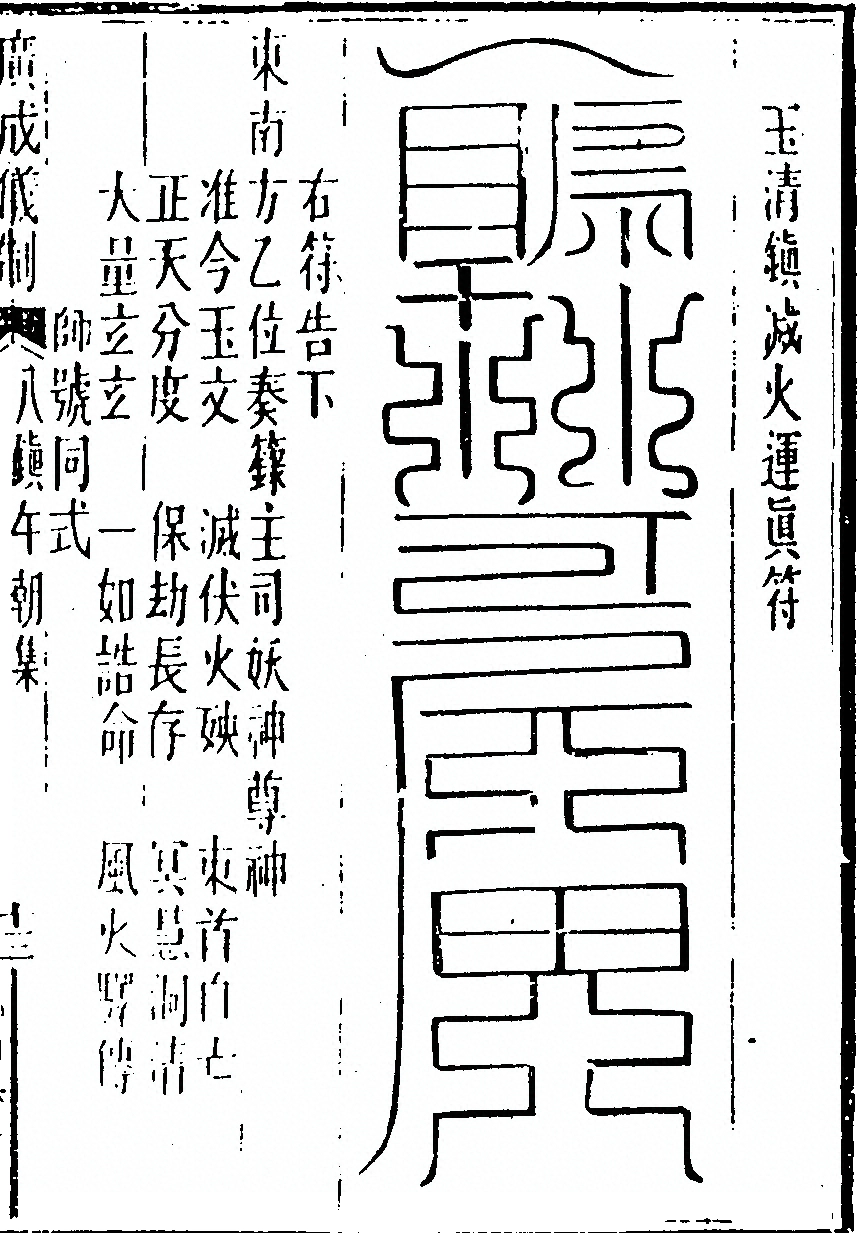 玉清鎮滅火運眞符
右符告下
東南方乙位奏籙主司妖神尊神
准今玉文 滅伏火殃 束首自亡
正天分度 保劫長存 冥慧洞清
大量玄玄 一如誥命 風火驛傳
師號同式
廣成儀制 八鎮午朝集 十三